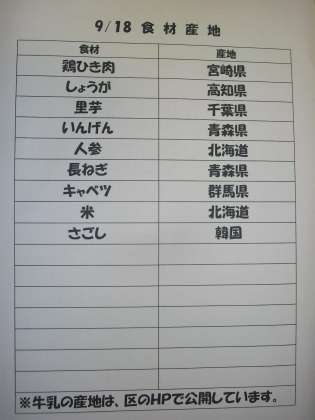 9/18 食材産地
食材 産地
鶏ひき肉 宮崎県
しょうが 高知県
里芋 千葉県
いんげん 青森県
人参 北海道
長ねぎ 青森県
キャベツ 群馬県
米 北海道
さごし 韓国
※牛乳の産地は、区のHPで公開しています。